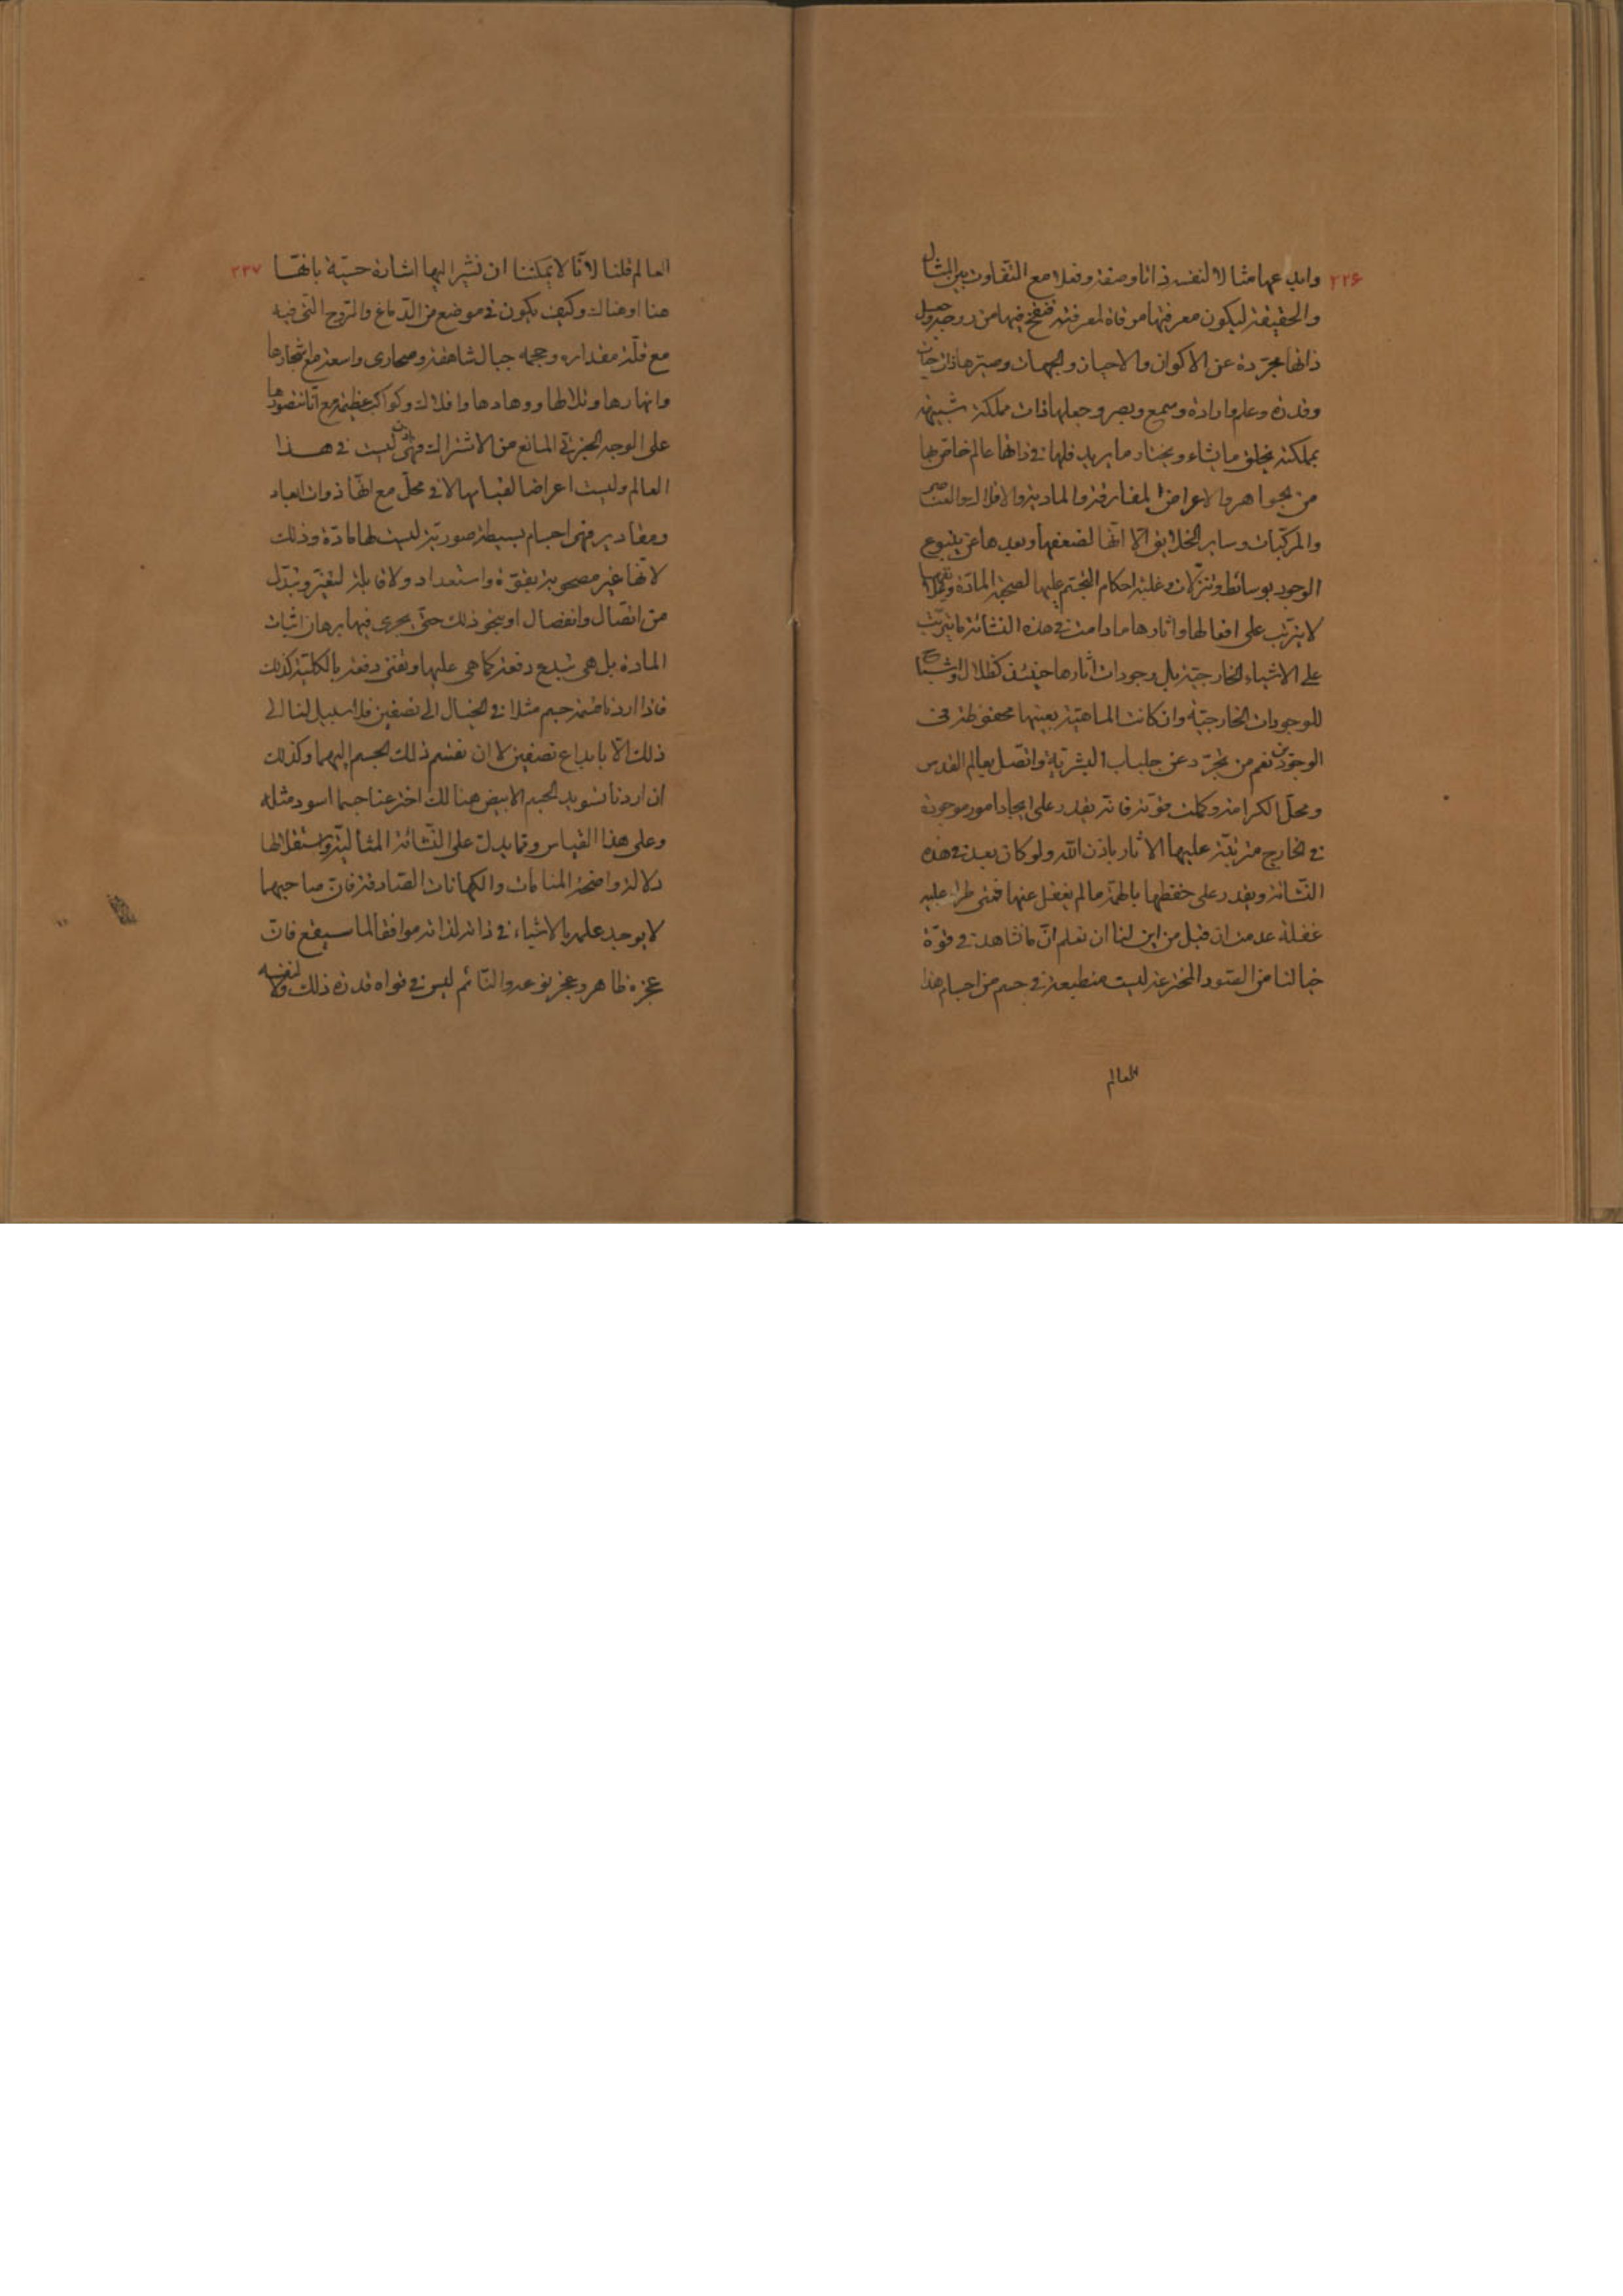 ٢٢۶
وابدعها مثالا لنفسه ذاتا وصفة وفعلا مع التفاوت بين المثال
والحقيقة ليكون معرفتها مرقاة لمعرفته فنفخ فيها من روحه وجعل
ذاتها مجرّدة عن الاكوان والاحيان والجهات وصيّرها ذات حيات
وقدرة وعلم وارادة وسمع وبصر وجعلها ذات مملكة شبيهة
بمملكته يخلق ما يشاء ويختار ما يريد فلها في ذاتها عالم خاص بها
من الجواهر والاعراض المفارقة والمادية والافلاك والعناصر
والمركبات وساير الخلايق الّا انّها لضعفها وبعدها عن ينبوع
الوجود بوسائط وتنزّلات وغلبة احكام التجسّم عليها لصحبة المادّة
لا يترتّب على افعالها واثارها ما دامت في هذه النشأة ما يترتّب
على الاشياء الخارجيّة بل وجودات آثارها حينئذ كظلال واشباح
للوجودات الخارجيّة وان كانت الماهيّة بعينها محفوظة في
الوجودين نعم من تجرّد عن جلباب البشريّة واتّصل بعالم القدس
ومحلّ الكرامة وكملت قوّته فانّه يقدر على ايجاد امور موجودة
في الخارج مترتّبة عليها الاثار باذن الله ولو كان بعد في هذه
النّشأة ويقدر على حفظها بالهمّة ما لم يغفل عنها فمتى طرأ عليه
غفلة عدمت ان قيل من اين لنا ان نعلم انّ ما نشاهد في قوّة
خيالنا من الصّور المخترعة ليست منطبعة في جسم من اجسام هذا
العالم
٢٢٧
العالم قلنا لانّا لا يمكننا ان نشير اليها اشارة حسّيّة بانّها
هنا او هناك وكيف يكون في موضع من الدّماغ والرّوح الّتي فيه
مع قلّة مقداره وحجمه جبال شاهقة وصحارى واسعة مع اشجارها
وانهارها وتلالها ووهادها وافلاك وكواكب عظيمة مع انّا نتصوّرها
على الوجه الجزئي المانع من الاشتراك فهي اذن ليست في هذا
العالم وليست اعراضا لقيامها لا في محلّ مع انّها ذوات ابعاد
ومقادير فهي اجسام بسيطة صوريّة ليست لها مادّة وذلك
لانّها غير مصحوبة بقوّة واستعداد ولا قابلة لتغيّر وتبدّل
من اتّصال وانفصال او نحو ذلك حتّى يجرى فيها برهان اثبات
المادة بل هي تبدع دفعة كما هي عليها وتفنى دفعة بالكليّة كذلك
فاذا اردنا قسمة جسم مثلا في الخيال الى نصفين فلا سبيل لنا الى
ذلك الّا بابداع نصفين لا ان نقسم ذلك الجسم اليهما وكذلك
ان اردنا تسويد الجسم الابيض هنالك اخترعنا جسما اسود مثله
وعلى هذا القياس وممّا يدلّ على النّشأة المثاليّة واستقلالها
دلالة واضحة المنامات والكهانات الصّادقة فانّ صاحبهما
لا يوجد علمه بالاشياء في ذاته لذاته موافقا لما سيقع فانّ
عجزه ظاهر وعجز نوعه والنّائم ليس في قواه قدرة ذلك